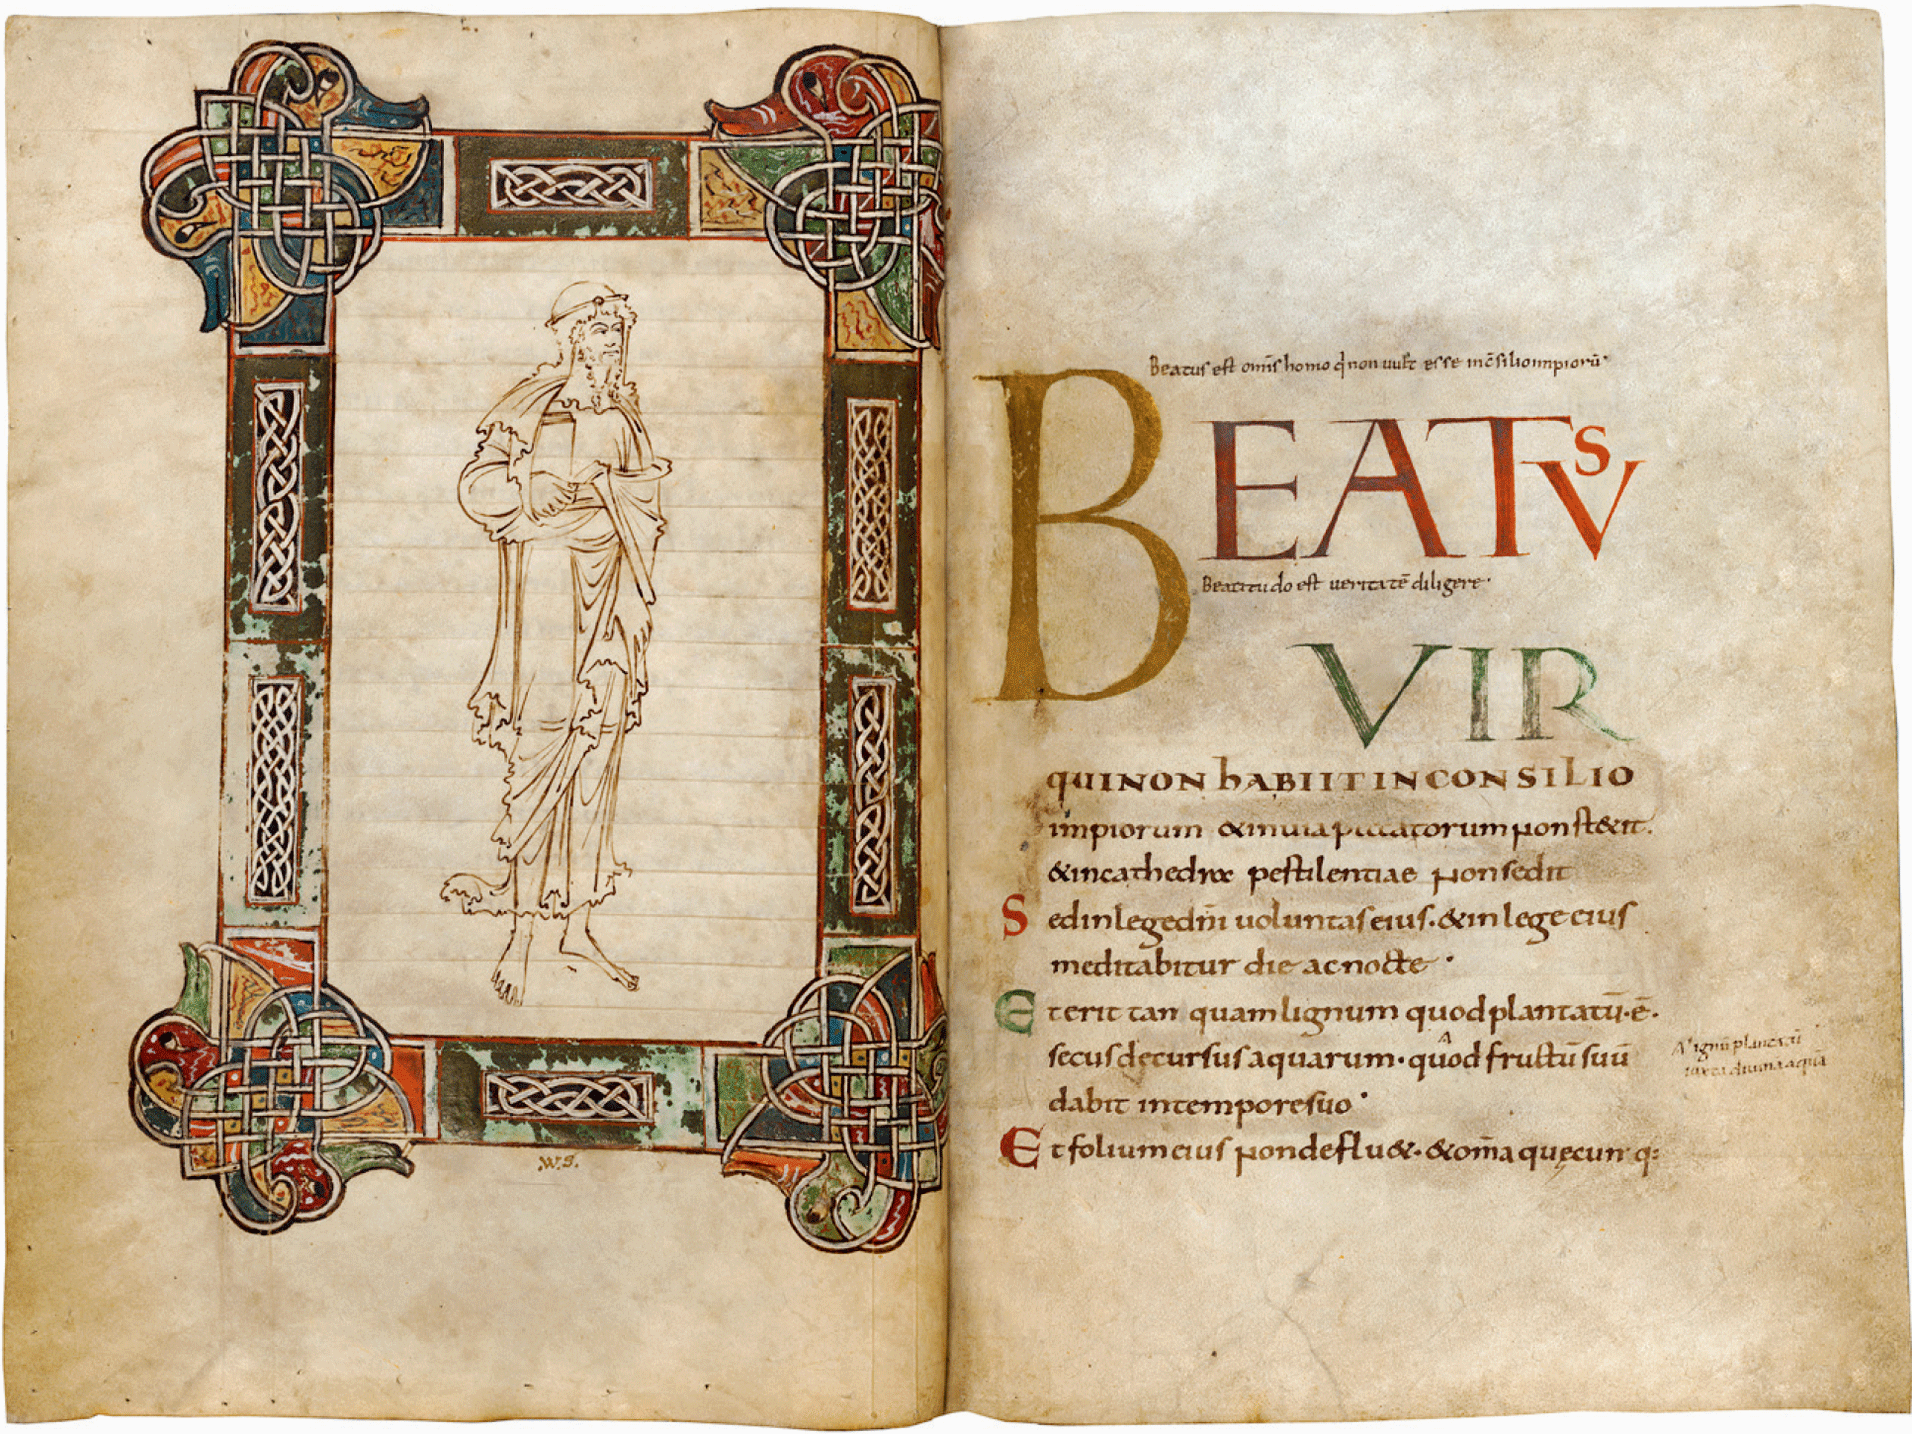 .W.S.
Beatus est om̄is homo q̇ non uult esse in c̄silio impiorū·
BEATVS
Beatitudo est veritatē diligere·
VIR
QUI NON hABIIT IN CONSILIO
impiorum & in uia peccatorum non stetit.
& in cathedra pestilentiae non sedit
Sed in lege dn̄i uoluntas eius· & in lege eius
meditabitur die ac nocte·
Et erit tan quam lignum quod plantatū· ē·
secus decursus aquarum· quod fructū suū
dabit in tempore suo·
A lignū plantatū
iuxta diuina aquā
Et folium eius non deflu&· & om̄a quęcunq: